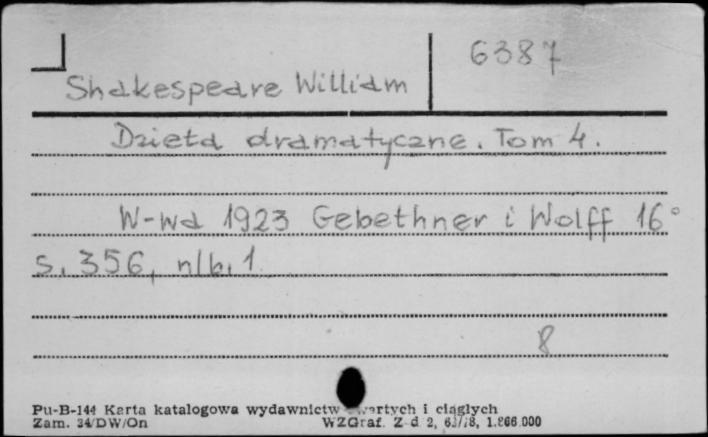 6387
Shakespeare William
Dzieła dramatyczne. Tom 4.
W-wa 1923 Gebethner i Wolff 16°
s. 356, nlb. 1
8
Pu-B-144 Karta katalogowa wydawnictw i ciągłych
Zam. 34/DW/On WZGraf. Z-d 2, 1.866.000